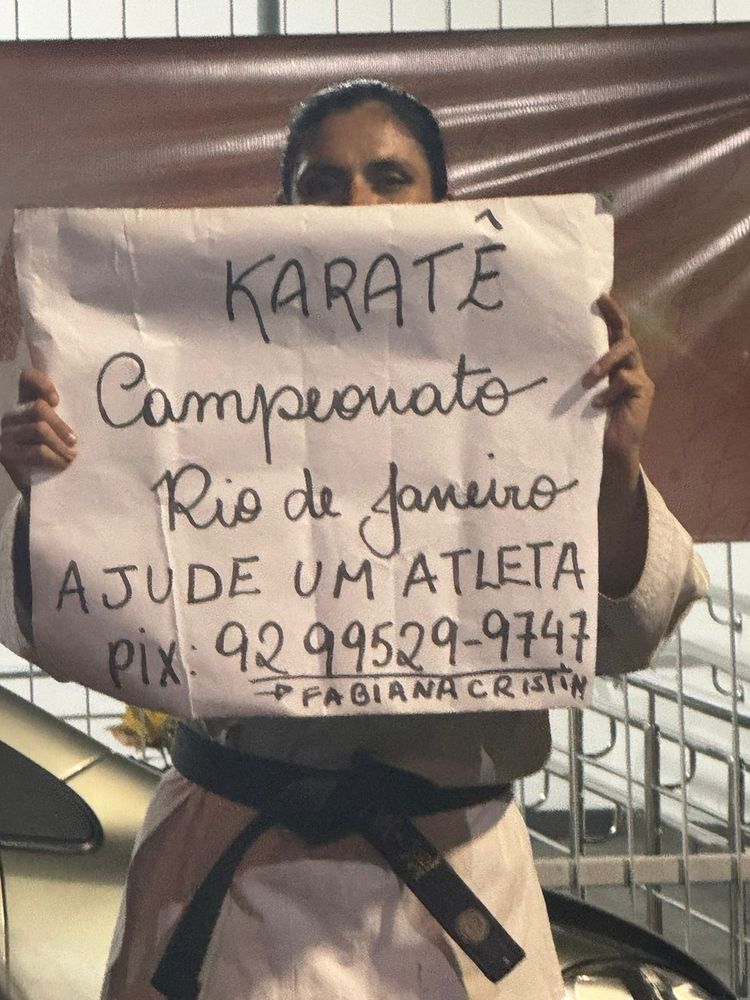 KARATÊ
Campeonato
Rio de Janeiro
AJUDE UM ATLETA
PIX: 92 99529-9747
→ FABIANA CRISTIN